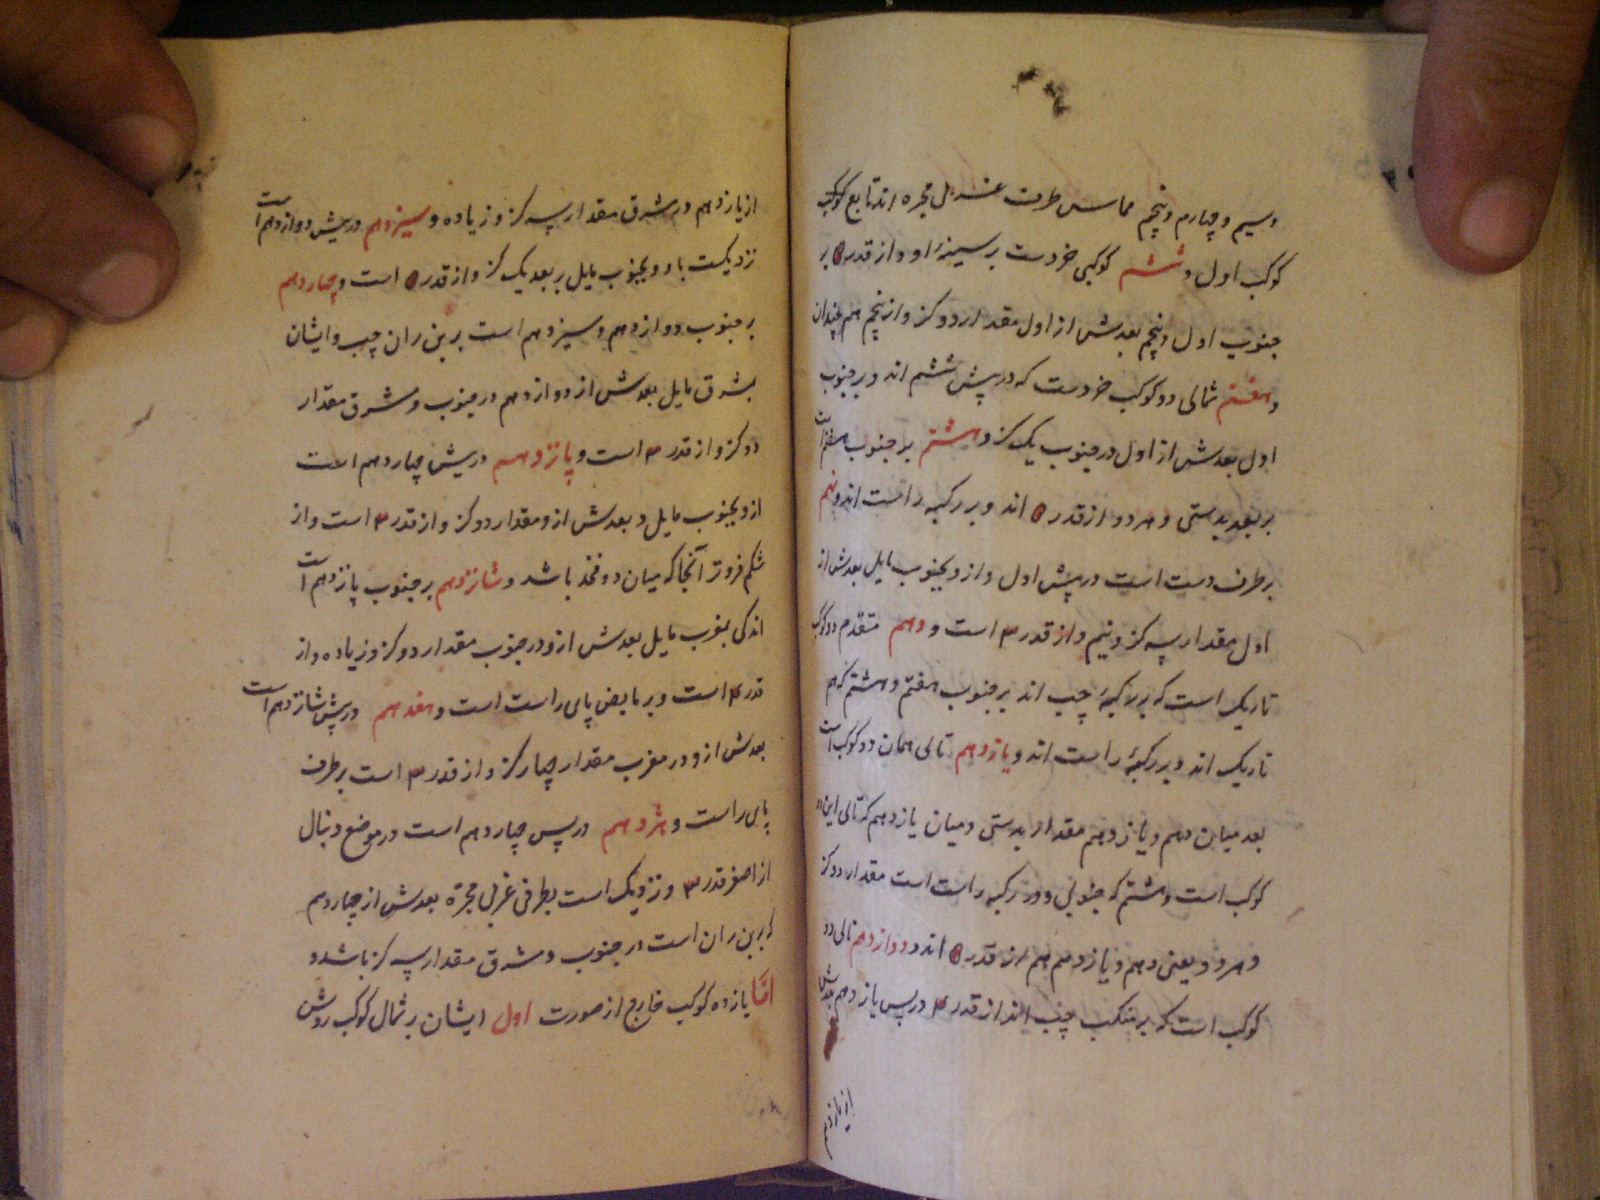 وسیم و چهارم و پنجم مماس طرف غربی مجره اند تابع کوکب
کوکب اول و ششم کوکبی خردست بر سینهٔ او و از قدر ۵ بر
جنوب اول و پنجم بعدش از اول مقدار دو کز و از پنجم هم چندان
و هفتم شمالی دو کوکب خردست که در پیش ششم اند و بر جنوب
اول بعدش از اول در جنوب یک کز و هشتم بر جنوب هفتم است
بر بعد بدستی و هر دو از قدر ۵ اند و بر رکبه راست اند و نهم
بر طرف دست است در پیش اول و از و بجنوب مایل بعدش از
اول مقدار سه کز و نیم و از قدر ۳ است و دهم متقدم دو کوکب
تاریک است که بر رکبهٔ چپ اند بر جنوب هفتم و هشتم که هم
تاریک اند و بر رکبهٔ راست اند و یازدهم تالی همان دو کوکب است
بعد میان دهم و یازدهم مقدار بدستی و میان یازدهم که تالی این دو
کوکب است و هشتم که جنوبی دو رکبه راست است مقدار دو کز
و هر دو یعنی دهم و یازدهم هم از قدر ۵ اند و دوازدهم تالی دو
کوکب است که بر منکب چپ اند از قدر ۴ در پس یازدهم بعدش
از یازد
از یازدهم در شرق مقدار سه کز و زیاده و سیزدهم در پیش دوازدهم است
نزدیکست باو و بجنوب مایل بر بعد یک کز و از قدر ۵ است و چهاردهم
بر جنوب دوازدهم و سیزدهم است بر بن ران چپ و ایشان
بشرق مایل بعدش از دوازدهم در جنوب و مشرق مقدار
دو کز و از قدر ۳ است و پانزدهم در پیش چهاردهم است
از و بجنوب مایل و بعدش از و مقدار دو کز و از قدر ۳ است و از
شکم فروتر آنجا که میان دو فخذ باشد و شانزدهم بر جنوب پانزدهم است
اندکی بغرب مایل بعدش از و در جنوب مقدار دو کز و زیاده و از
قدر ۴ است و بر مابض پای راست است و هفدهم در پیش شانزدهم است
بعدش از و در مغرب مقدار چهار کز و از قدر ۳ است بر طرف
پای راست و هژدهم در پس چهاردهم است در موضع دنبال
از اصغر قدر ۳ و نزدیک است بطرف غربی مجرة بعدش از چهاردهم
که بر بن ران است در جنوب و مشرق مقدار سه کز باشد و
امّا یازده کوکب خارج از صورت اول ایشان بر شمال کوکب روشن